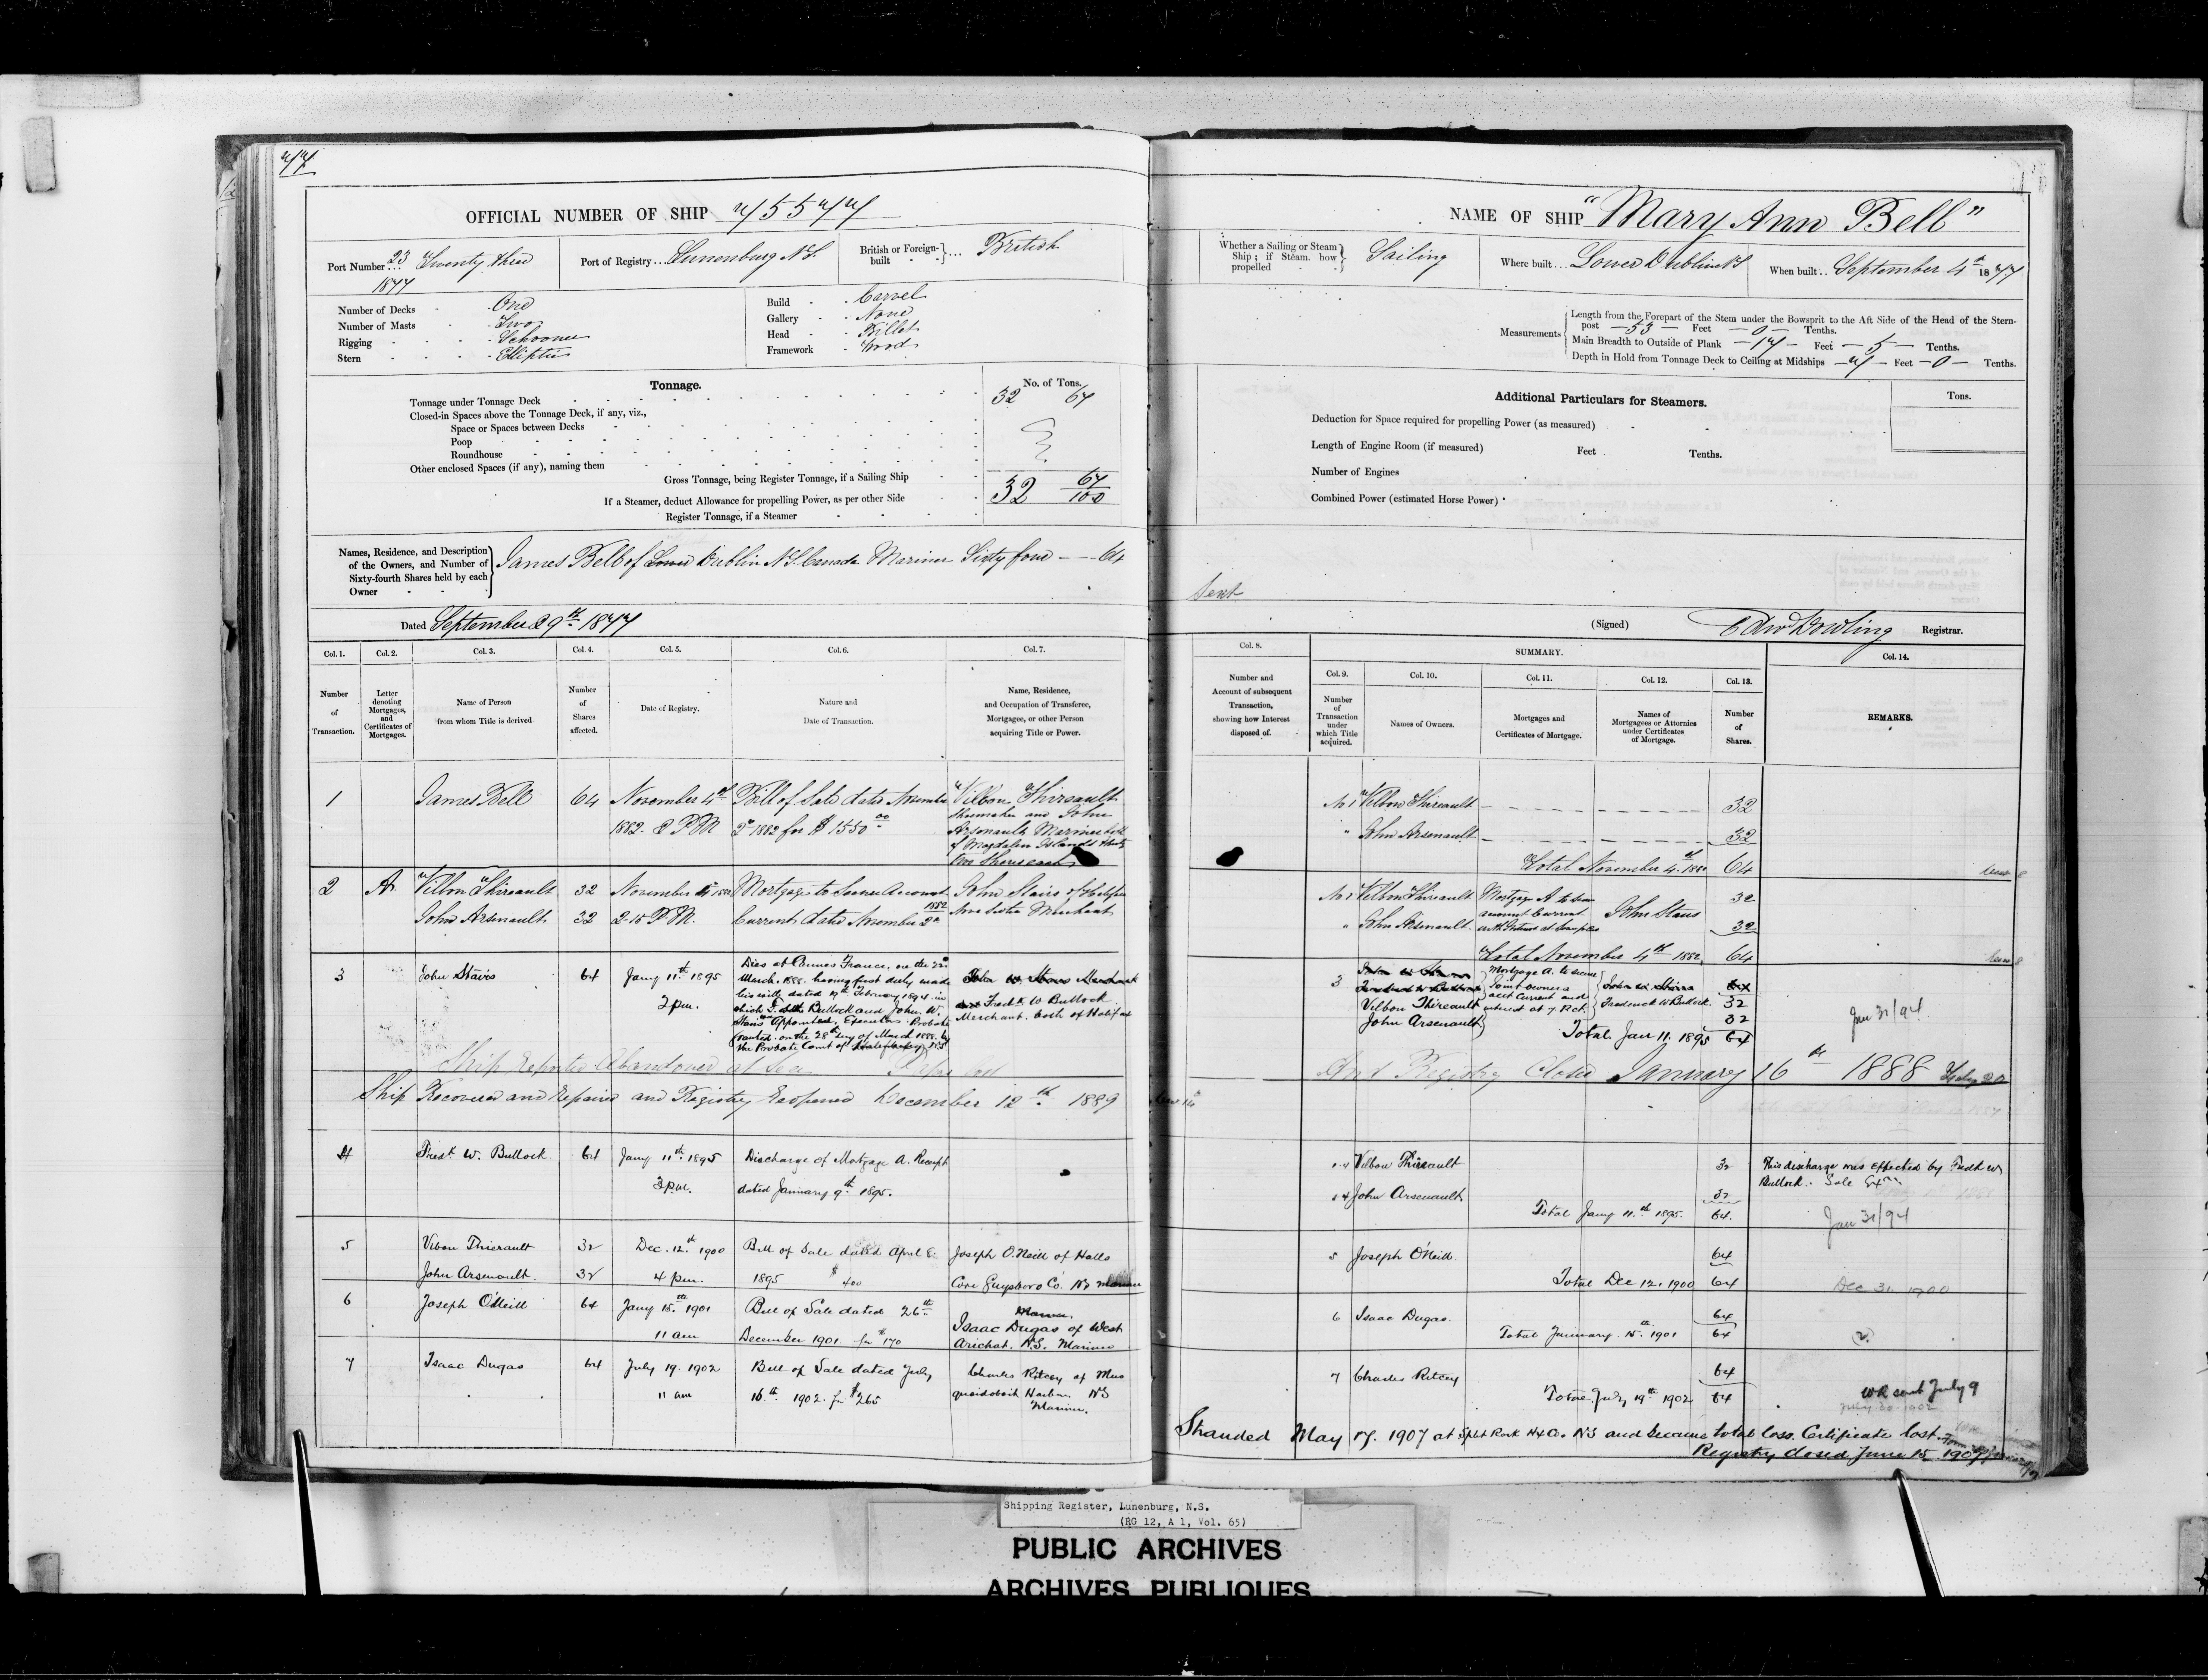 77
OFFICIAL NUMBER OF SHIP 75577
Port Number 23 Twenty three
1877
Port of Registry... Lunenburg N.S.
British or Foreign-built ... British
Number of Decks - One
Number of Masts - Two
Rigging - Schooner
Stern - Elliptic
Build - Carvel
Gallery - None
Head - Billet
Framework - Wood
Tonnage.
No. of Tons.
Tonnage under Tonnage Deck 32 67
Closed-in Spaces above the Tonnage Deck, if any, viz.,
Space or Spaces between Decks
Poop
Roundhouse
Other enclosed Spaces (if any), naming them
Gross Tonnage, being Register Tonnage, if a Sailing Ship 32 67/100
If a Steamer, deduct Allowance for propelling Power, as per other Side
Register Tonnage, if a Steamer
Names, Residence, and Description
of the Owners, and Number of
Sixty-fourth Shares held by each
Owner
James Bell of Lower Dublin N.S. Canada Mariner Sixty four — 64
Dated September 29th 1877
Col. 1. Col. 2. Col. 3. Col. 4. Col. 5. Col. 6. Col. 7.
Number of Transaction.
Letter denoting Mortgages, and Certificates of Mortgages.
Name of Person from whom Title is derived
Number of Shares affected.
Date of Registry.
Nature and Date of Transaction.
Name, Residence, and Occupation of Transferee, Mortgagee, or other Person acquiring Title or Power.
1 James Bell 64 November 4th Bill of Sale dated November Vilbon Thireault
1882. 2 PM 2d 1882 for $1550 00 and John
Arsenault Mariner both
of Magdalen Islands thirty
two Shares each
2 A Vilbon Thireault 32 November 4th 1882 Mortgage to Secure Account John Stairs of Halifax
John Arsenault 32 2-15 P.M. Current dated November 2d 1882 Nova Scotia Merchant
3 John Stairs 64 Jany 11th 1895 Died at Cannes France, on the
2 pm. March. 1888. having first duly made
his will, dated February in
which F. W. Bullock and John W.
Stairs were Appointed Executors. Probate
granted on the 28th day of March 1888. by
the Probate Court of
John W Stairs Merchant
and Fredk W Bullock
Merchant. both of Halifax
Ship Reported Abandoned at Sea lost
Ship Recovered and Repaired and Registry Reopened December 12th 1889
4 Fredk W. Bullock 64 Jany 11th 1895 Discharge of Mortgage A. Receipt
3 pm. dated January 9th 1895.
5 Vibon Thierault 32 Dec. 12th 1900 Bill of Sale dated April 8 Joseph O'Neill of Halls
John Arsenault. 32 4 pm. 1895 $400 Cove Guysboro Co. NS Mariner
6 Joseph O'Neill 64 Jany 15th 1901 Bill of Sale dated 26th Isaac Dugas of West
11 am December 1901 for $170 Arichat. N.S. Mariner
7 Isaac Dugas 64 July 19. 1902 Bill of Sale dated July Charles Ritcey of Mus
11 am 16th 1902. for $265 quodoboit Harbor NS
Mariner.
NAME OF SHIP "Mary Ann Bell"
Whether a Sailing or Steam Ship; if Steam, how propelled Sailing
Where built... Lower Dublin NS
When built... September 4th 1877
Measurements
Length from the Forepart of the Stem under the Bowsprit to the Aft Side of the Head of the Stern-
post — 53 — Feet — 0 — Tenths.
Main Breadth to Outside of Plank — 17 — Feet — 5 — Tenths.
Depth in Hold from Tonnage Deck to Ceiling at Midships — 7 — Feet — 0 — Tenths.
Additional Particulars for Steamers.
Tons.
Deduction for Space required for propelling Power (as measured)
Length of Engine Room (if measured) Feet Tenths.
Number of Engines
Combined Power (estimated Horse Power)
Sent
(Signed) Edwd Dowling Registrar.
Col. 8. SUMMARY. Col. 14.
Col. 9. Col. 10. Col. 11. Col. 12. Col. 13.
Number and Account of subsequent Transaction, showing how Interest disposed of.
Number of Transaction under which Title acquired.
Names of Owners.
Mortgages and Certificates of Mortgage.
Names of Mortgagees or Attornies under Certificates of Mortgage.
Number of Shares.
REMARKS.
No 1 Vilbon Thireault 32
" John Arsenault 32
Total November 4th 1882 64
No 1 Vilbon Thireault Mortgage A to Secure 32
" John Arsenault account Current with Interest John Stairs 32
Total November 4th 1882 64
3 Vilbon Thireault Mortgage A. to secure John W Stairs 32
John Arsenault acct Current and interest at 7 Pct. Frederick W Bullock. 32
Total Jan 11. 1895 64
Jan 31/94
And Registry Closed January 16th 1888
Vilbon Thireault 32
John Arsenault 32
Total Jany 11th 1895. 64.
This discharge was effected by Fredk W
Bullock. Sole
Jan 31/94
5 Joseph O'Neill 64
Total Dec 12. 1900 64
Dec 31. 1900
6 Isaac Dugas. 64
Total January. 15th 1901 64
7 Charles Ritcey 64
Total July 19th 1902 64
WR sent July 9
July 20. 1902
Stranded May 17. 1907 at Split Rock Hx Co. NS and became total loss. Certificate lost.
Registry closed June 15, 1907
Shipping Register, Lunenburg, N.S.
(RG 12, A 1, Vol. 65)
PUBLIC ARCHIVES
ARCHIVES PUBLIQUES